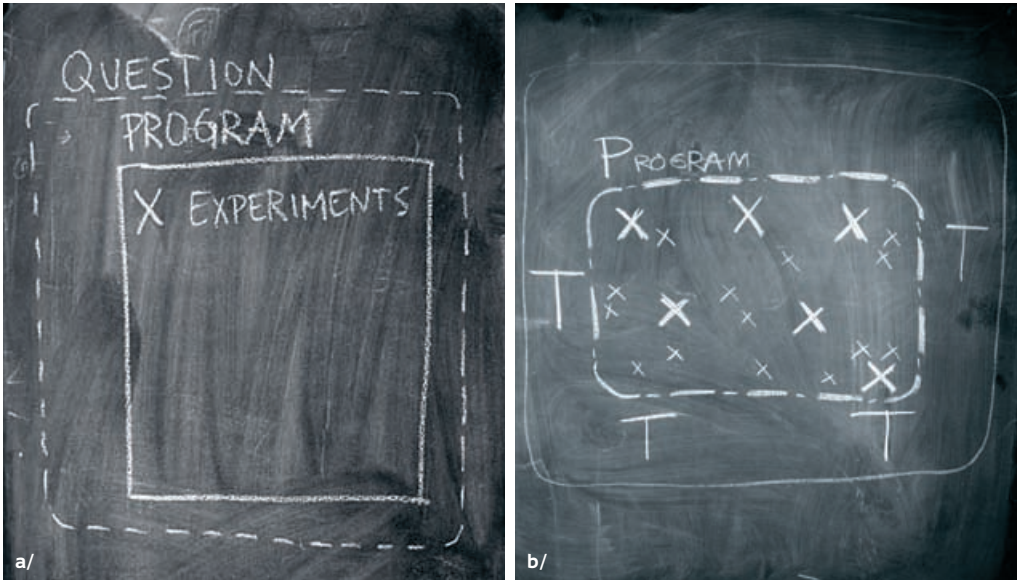 QUESTION
PROGRAM
X EXPERIMENTS
a/
PROGRAM
X X X
X X
X X
T
T
X X
X X X
X
X X
X
X X X
X X
T T
b/